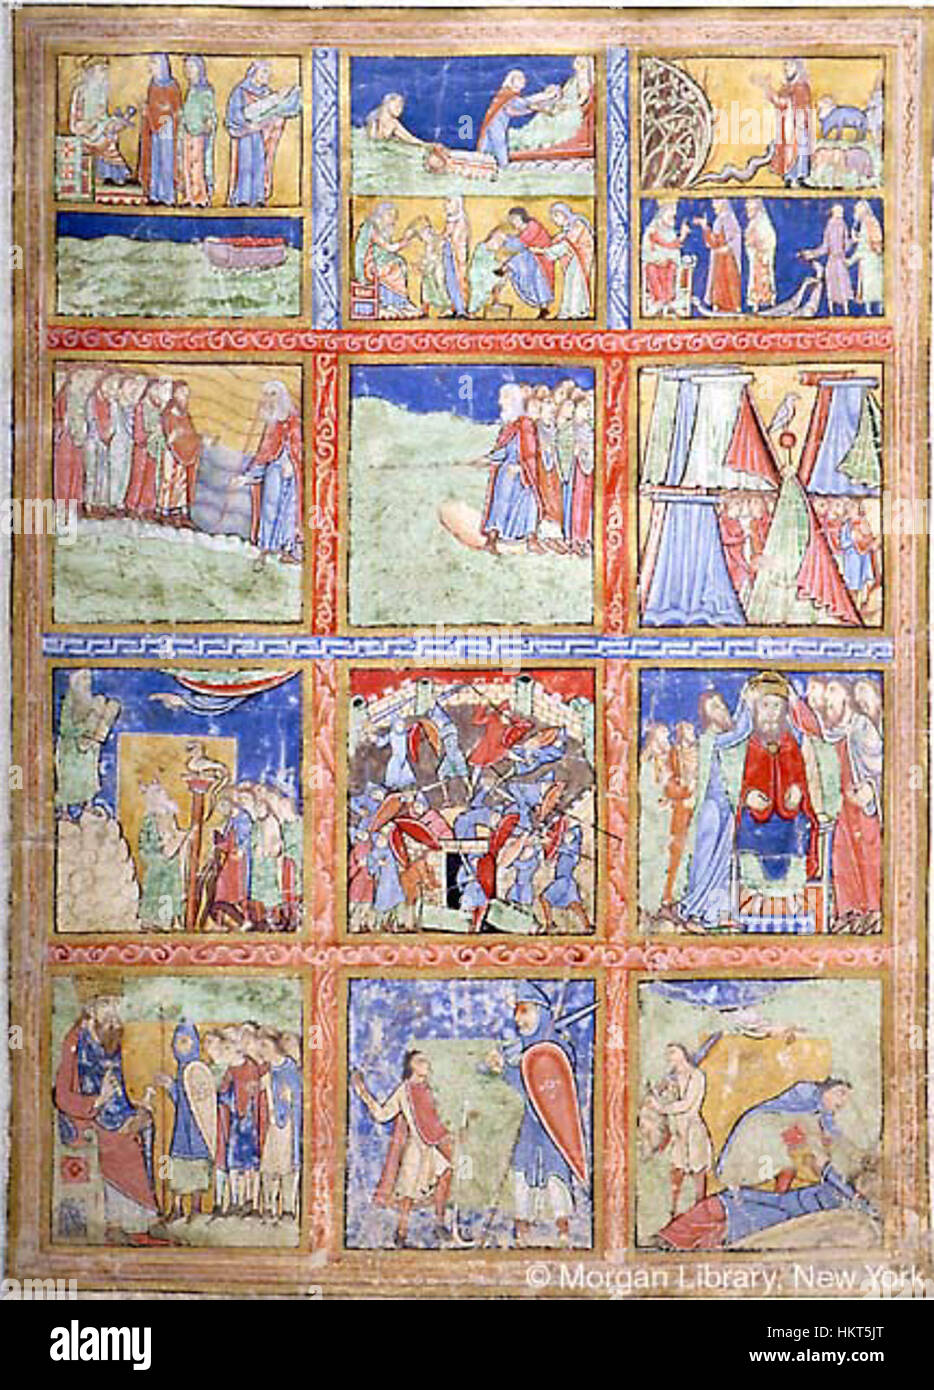 alamy
© Morgan Library, New York
alamy
Image ID: HKT5JT
www.alamy.com